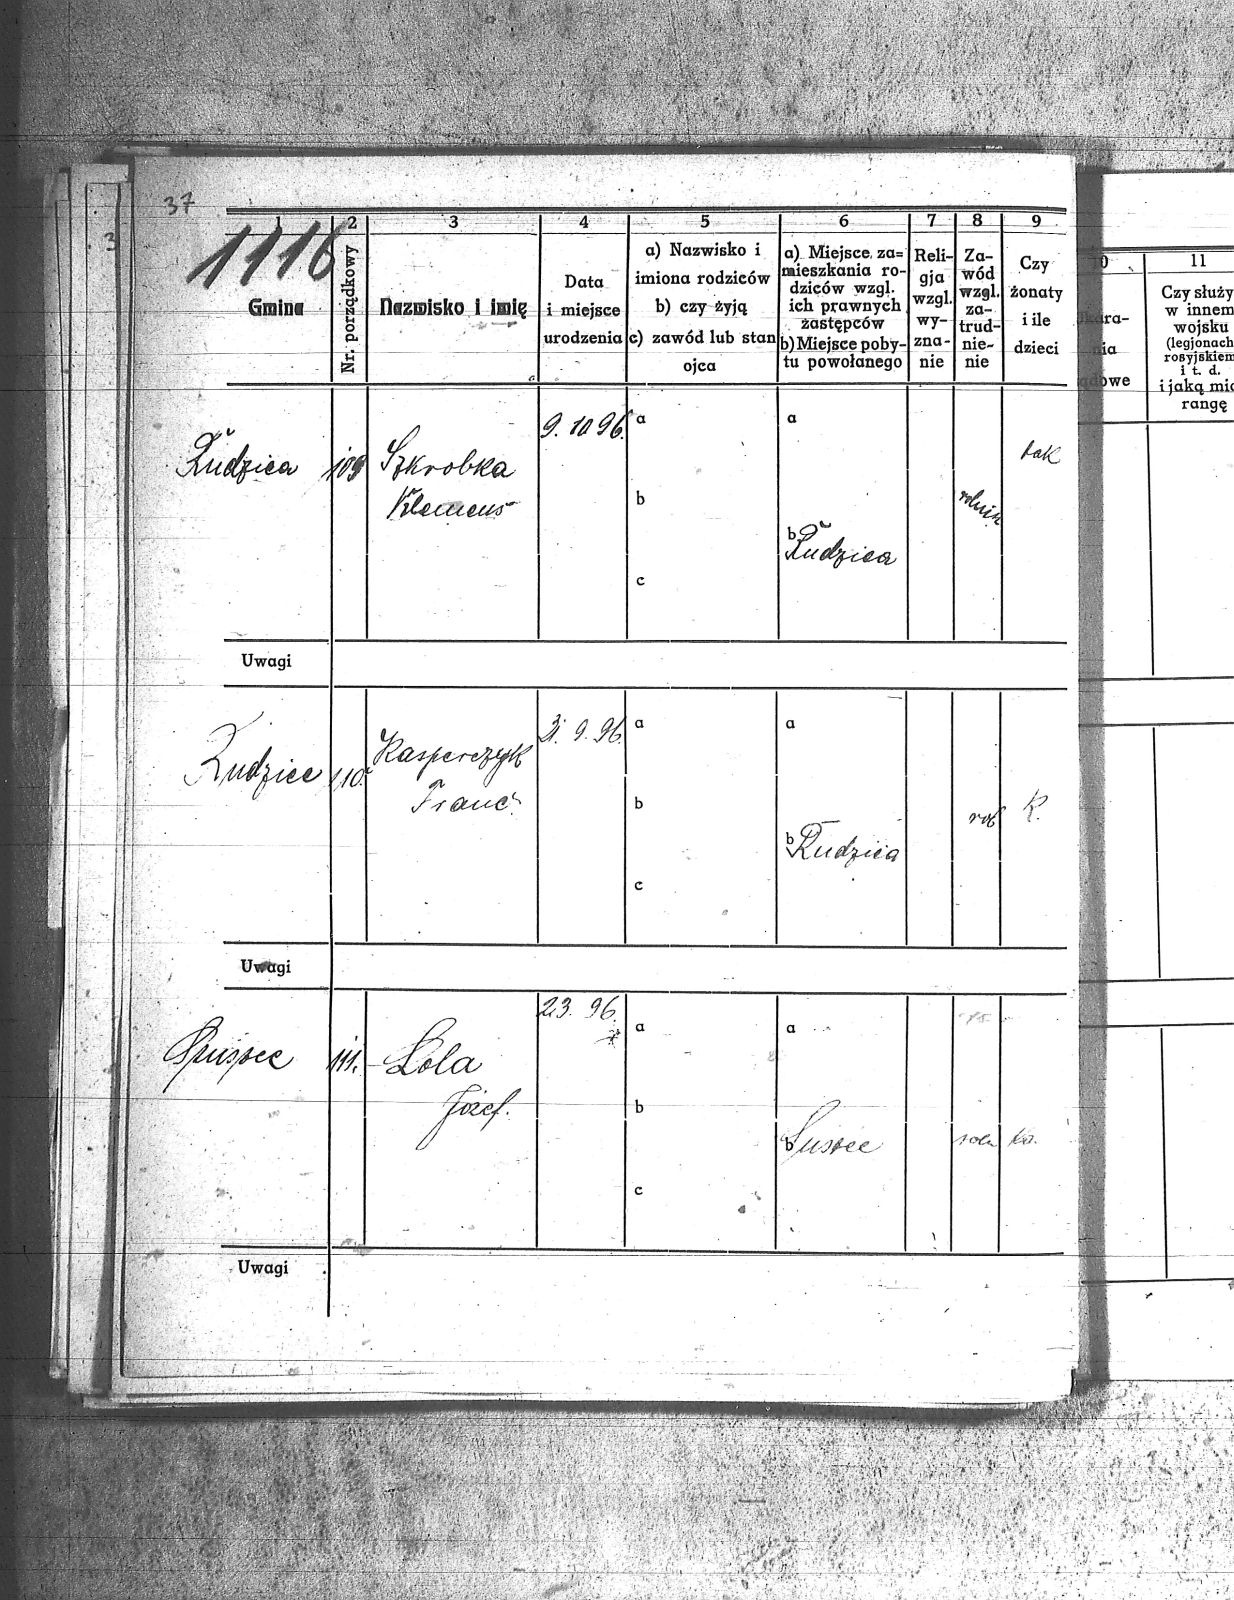 37
1 2 3 4 5 6 7 8 9
1116
Gmina
Nr. porządkowy
Nazwisko i imię
Data
i miejsce
urodzenia
a) Nazwisko i
imiona rodziców
b) czy żyją
c) zawód lub stan
ojca
a) Miejsce za=
mieszkania ro-
dziców wzgl.
ich prawnych
zastępców
b) Miejsce poby-
tu powołanego
Reli-
gja
wzgl.
wy-
zna-
nie
Za-
wód
wzgl.
za-
trud-
nie-
nie
Czy
żonaty
i ile
dzieci
0
kara-
nia
ądowe
11
Czy służy
w innem
wojsku
(legjonach
rosyjskiem
i t. d.
i jaką mia
rangę
Rudzica 109 Szkrobka
Klemens
9. 10 96.
a
b
c
a
b Rudzica
rolnik
tak
Uwagi
Rudzice 110. Kasperczyk
Franc.
21. 9. 96.
a
b
c
a
b Rudzica
rob
K.
Uwagi
Suszec 111. Lola
Józef.
23. 96.
a
b
c
a
b Suszec
Uwagi